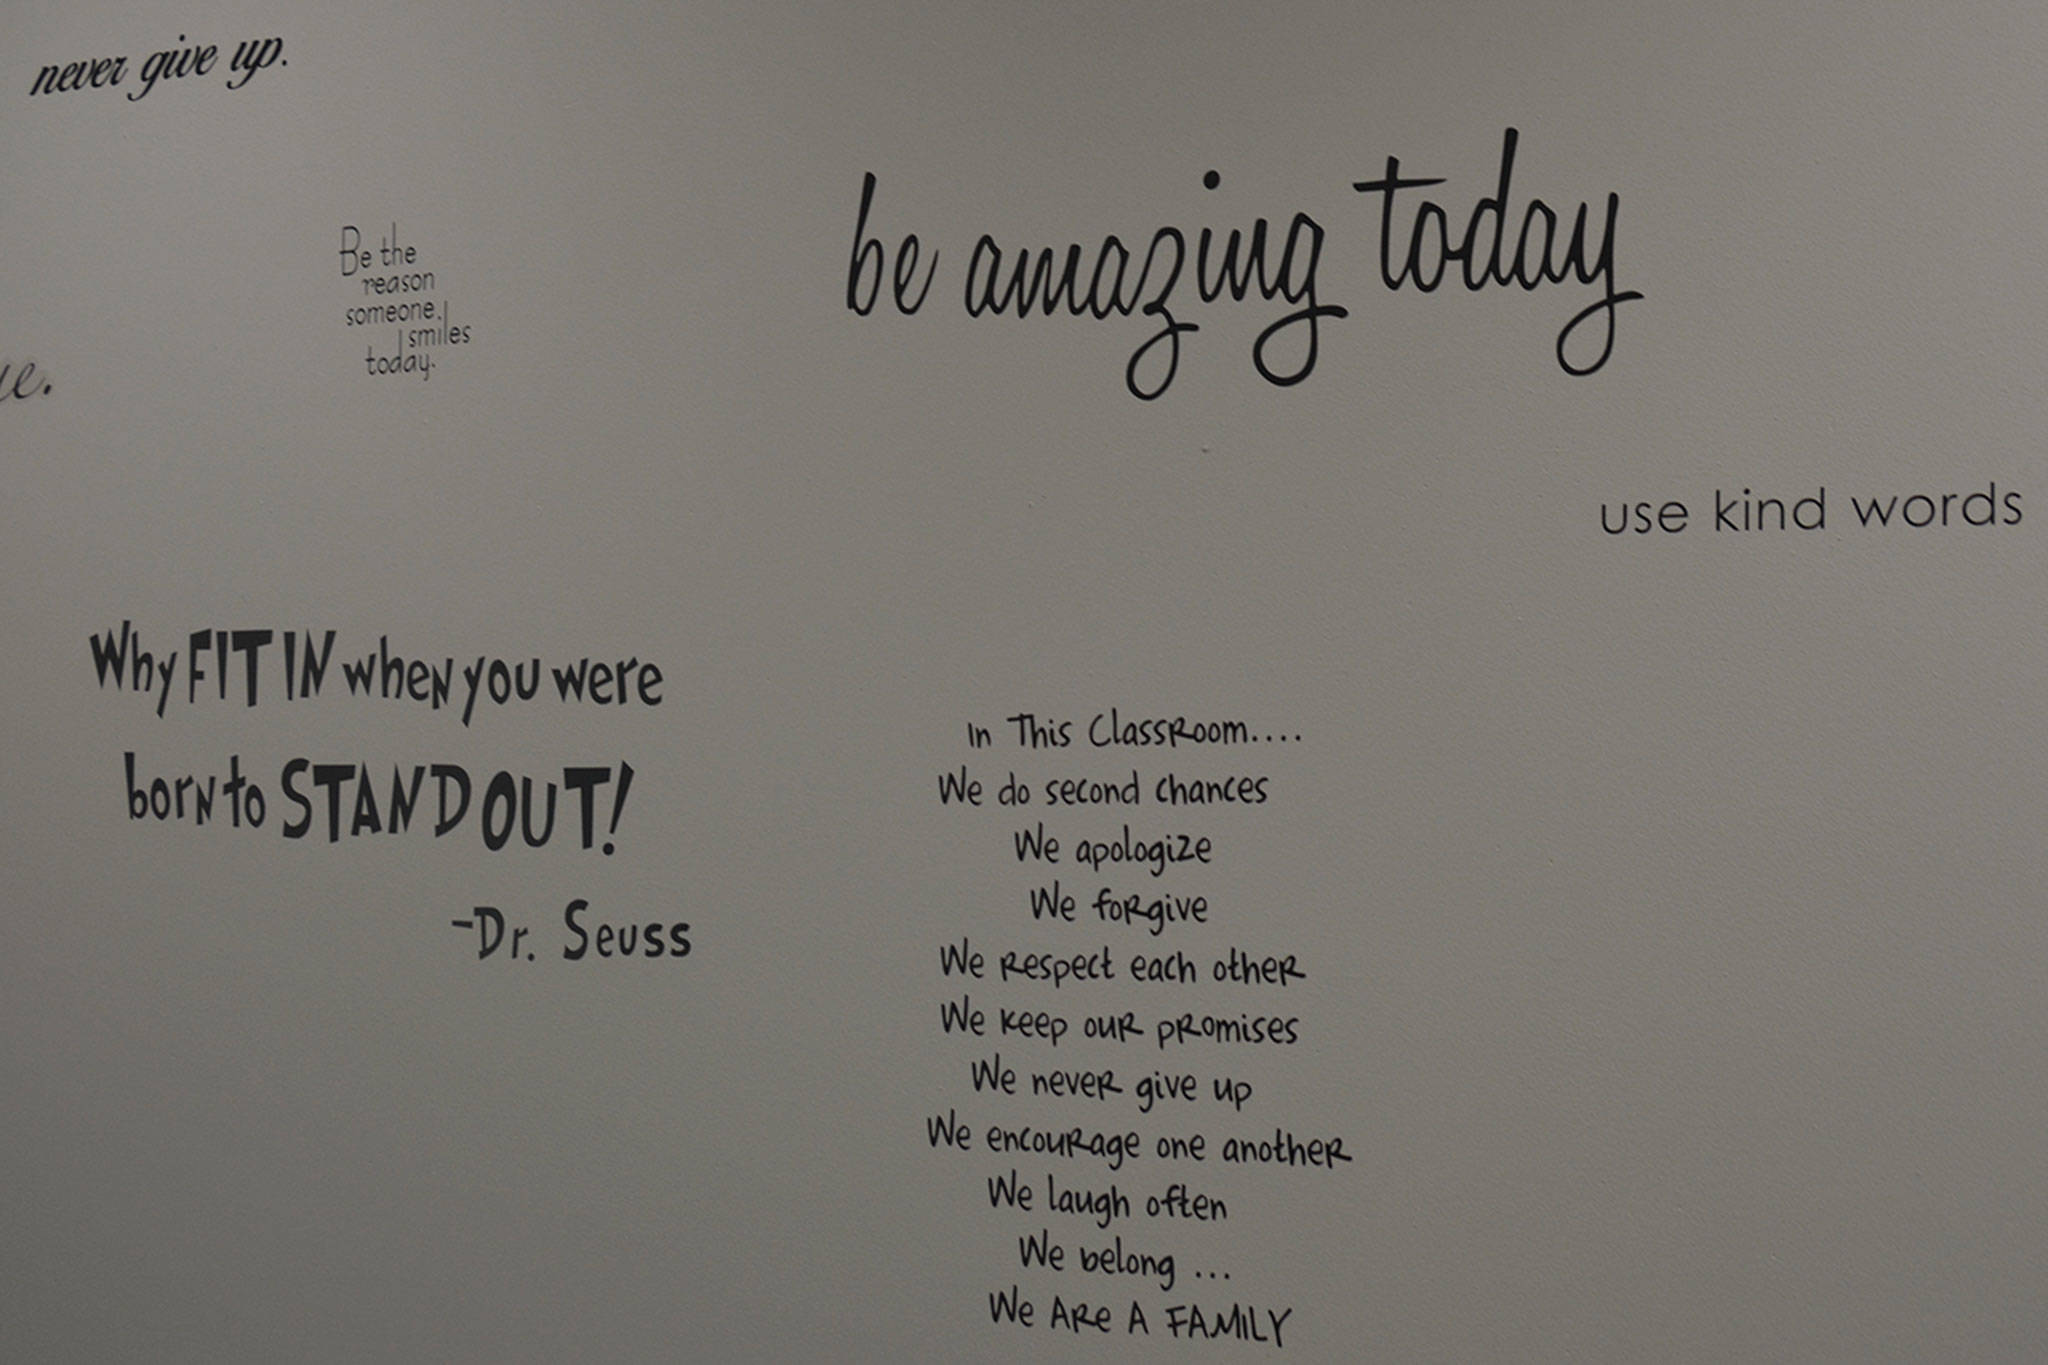 never give up.
Be the
reason
someone
smiles
today.
be amazing today
use kind words
Why FIT IN when you were
born to STAND OUT!
-Dr. Seuss
In This Classroom....
We do second chances
We apologize
We forgive
We respect each other
We keep our promises
We never give up
We encourage one another
We laugh often
We belong ...
We Are A FAMILY